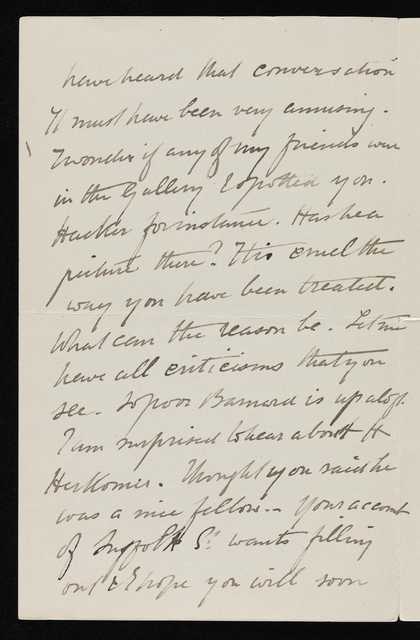 have heard that conversation
It must have been very amusing.
I wonder if any of my friends were
in the Gallery & spotted you.
Hacker for instance. Has he a
picture there? It is cruel the
way you have been treated.
What can the reason be. Let me
have all criticisms that you
see. So poor Barnard is up
I am surprised to hear about H
Herkomer. Thought you said he
was a nice fellow.. Your account
of Suffolk St wants filling
out & I hope you will soon